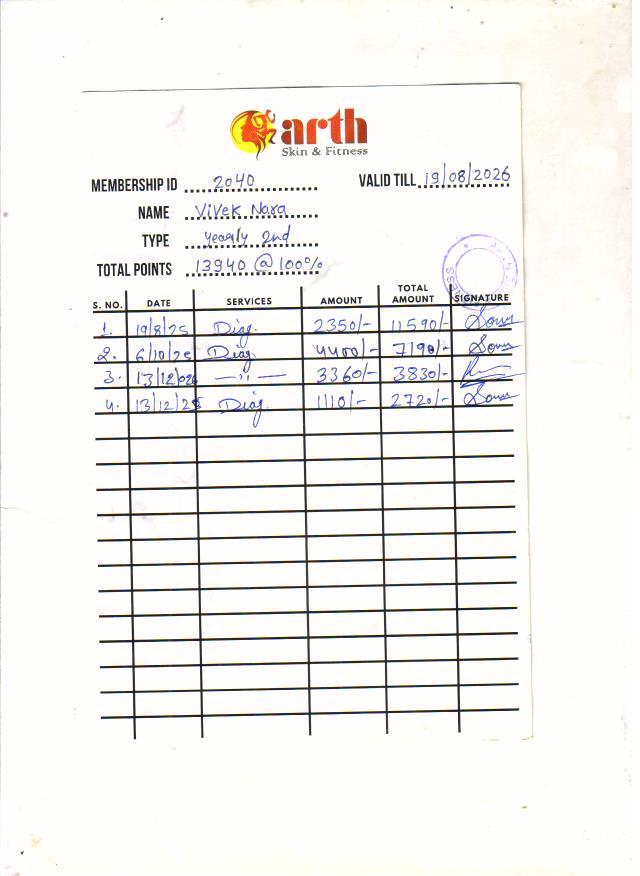 arth
Skin & Fitness
MEMBERSHIP ID 2040 VALID TILL 19/08/2026
NAME Vivek Nara
TYPE Yearly 2nd
TOTAL POINTS 13940 @ 100%
S. NO. DATE SERVICES AMOUNT TOTAL AMOUNT SIGNATURE
1. 19/8/25 Diag. 2350/- 11590/-
2. 6/10/25 Diag. 4400/- 7190/-
3. 13/12/02 —〃— 3360/- 3830/-
4. 13/12/25 Diag. 1110/- 2720/-